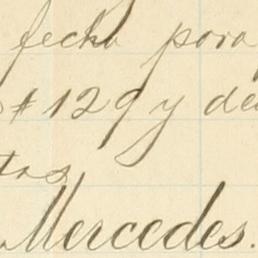 fecha para
# 129 y de
tas
Mercedes.